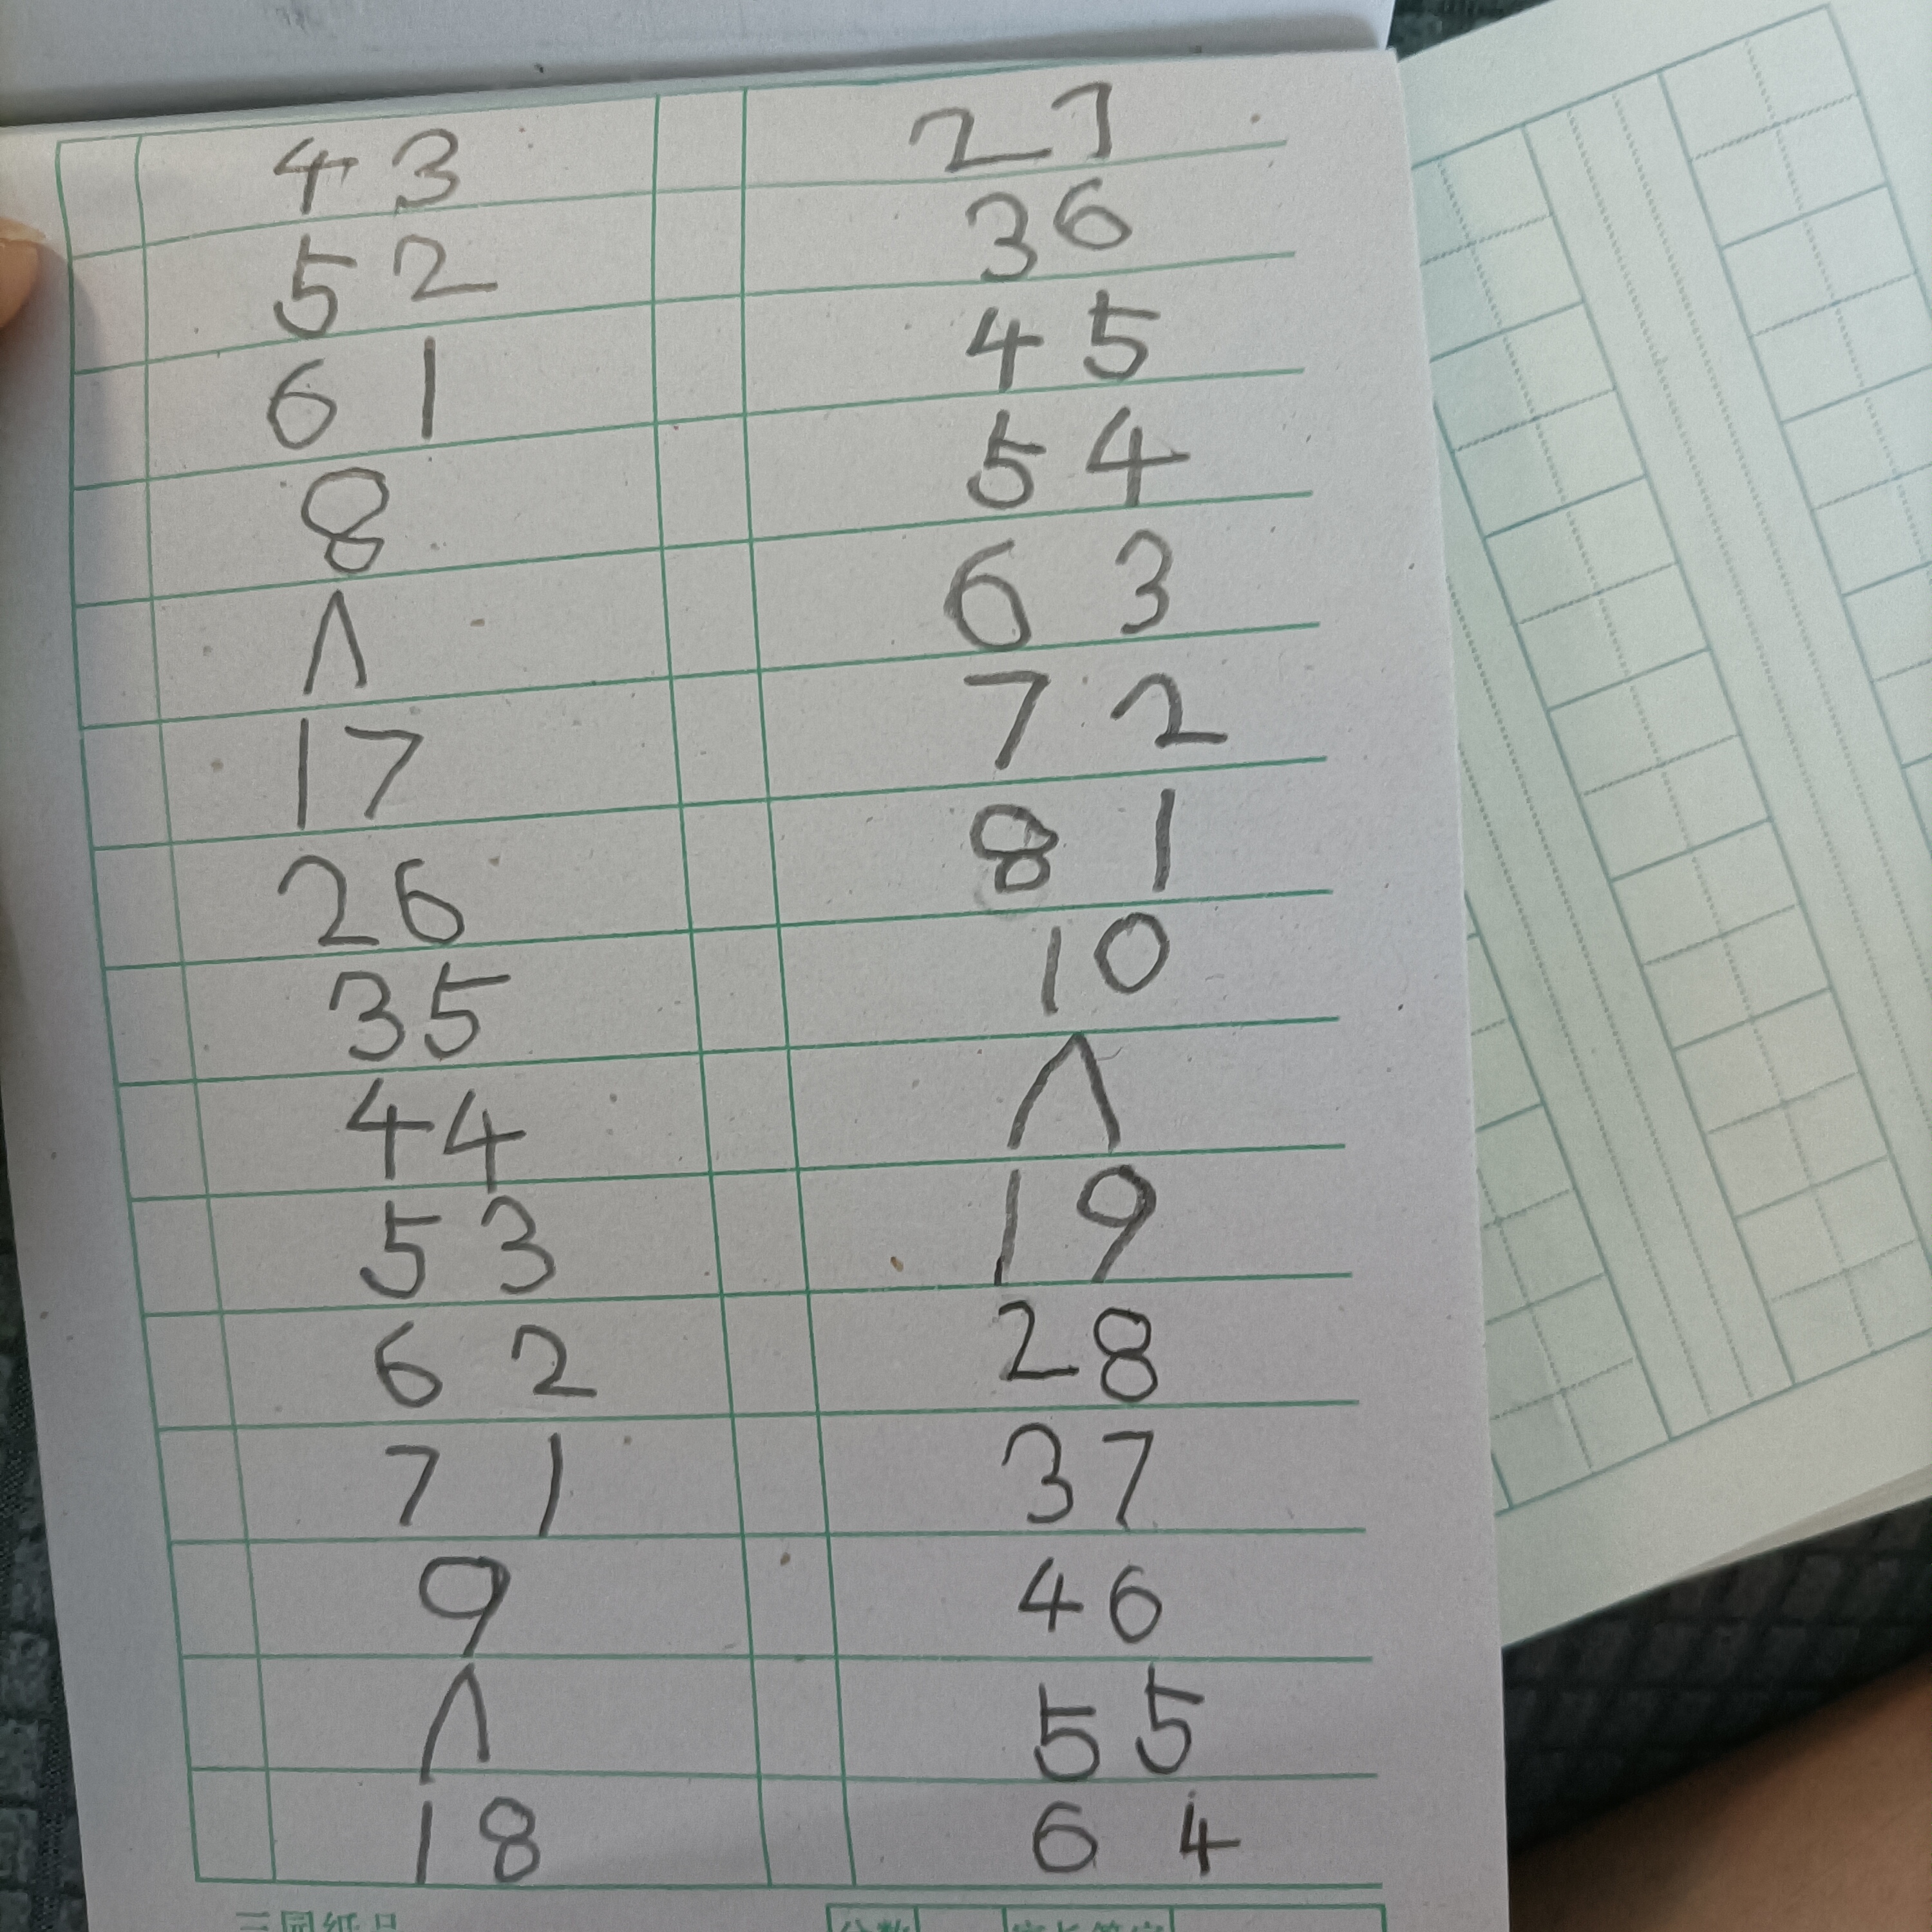 4 3
5 2
6 1
8
∧
1 7
2 6
3 5
4 4
5 3
6 2
7 1
9
∧
1 8
2 7
3 6
4 5
5 4
6 3
7 2
8 1
1 0
∧
1 9
2 8
3 7
4 6
5 5
6 4
三园纸品
分数
家长签字